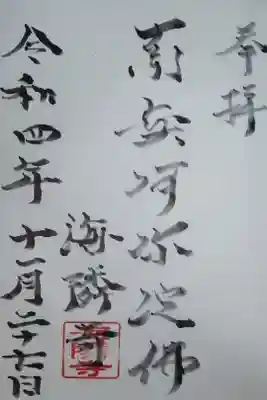 奉拝
南無阿弥陀佛
海隣寺
令和四年十一月二十六日